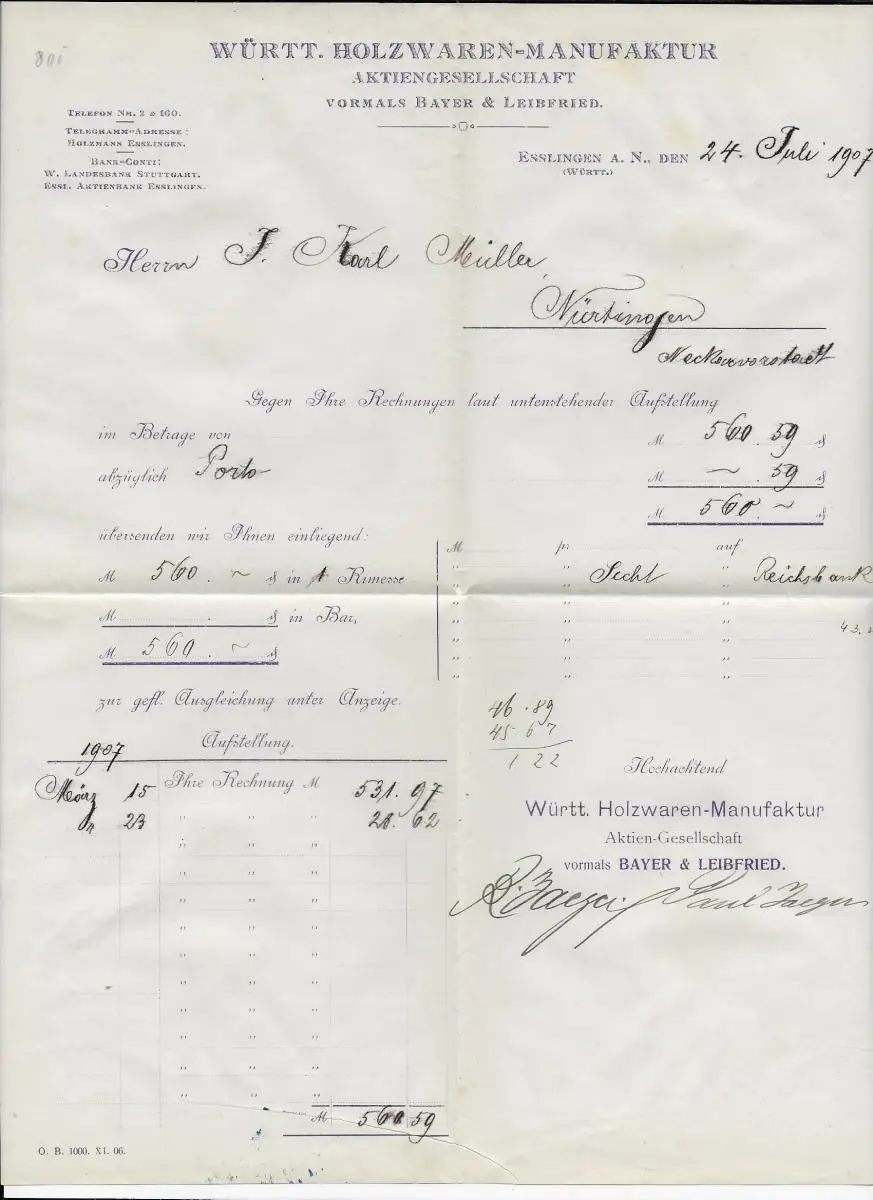 WÜRTT. HOLZWAREN-MANUFAKTUR
AKTIENGESELLSCHAFT
VORMALS BAYER & LEIBFRIED.
TELEFON NR. 2 & 160.
TELEGRAMM-ADRESSE:
HOLZMANN ESSLINGEN.
BANK-CONTI:
W. LANDESBANK STUTTGART.
ESSL. AKTIENBANK ESSLINGEN.
ESSLINGEN A. N., DEN 24. Juli 1907
(WÜRTT.)
Herrn J. Karl Müller
Nürtingen
Neckarvorstadt
Gegen Ihre Rechnungen laut untenstehender Aufstellung
im Betrage von M 560.59 ₰
abzüglich Porto M ~ .59 ₰
M 560.~ ₰
übersenden wir Ihnen einliegend:
M pr auf
M 560.~ ₰ in 1 Rimesse " " Sicht " Reichsbank
M . ₰ in Bar,
M 560.~ ₰
zur gefl. Ausgleichung unter Anzeige.
46.89
45 67
1 22
1907 Aufstellung.
März 15 Ihre Rechnung M 531.97
" 23 " " " 28.62
M 560 59
Hochachtend
Württ. Holzwaren-Manufaktur
Aktien-Gesellschaft
vormals BAYER & LEIBFRIED.
Paul Jaeger
O. B. 1000. XI. 06.